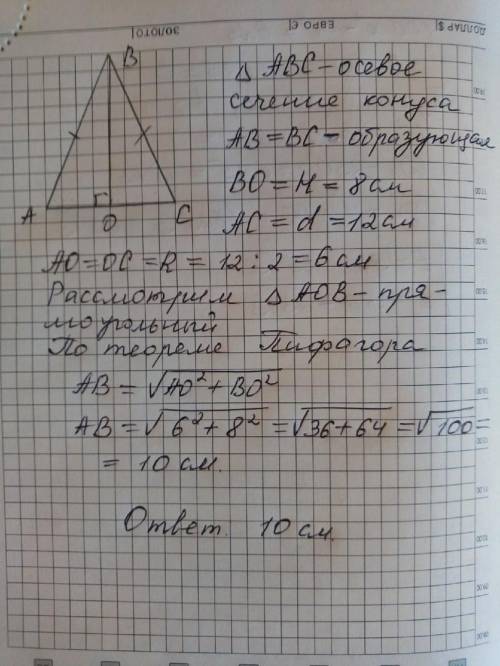 ДОЛЛАР $
ЕВРО €
ЗОЛОТО
B
A
O
C
△ ABC - осевое
сечение конуса
AB = BC - образующая
BO = H = 8 см
AC = d = 12 см
AO = OC = R = 12 : 2 = 6 см
Рассмотрим △ AOB - пря-
моугольный
По теореме Пифагора
AB = √AO² + BO²
AB = √6² + 8² = √36 + 64 = √100 =
= 10 см.
Ответ. 10 см.